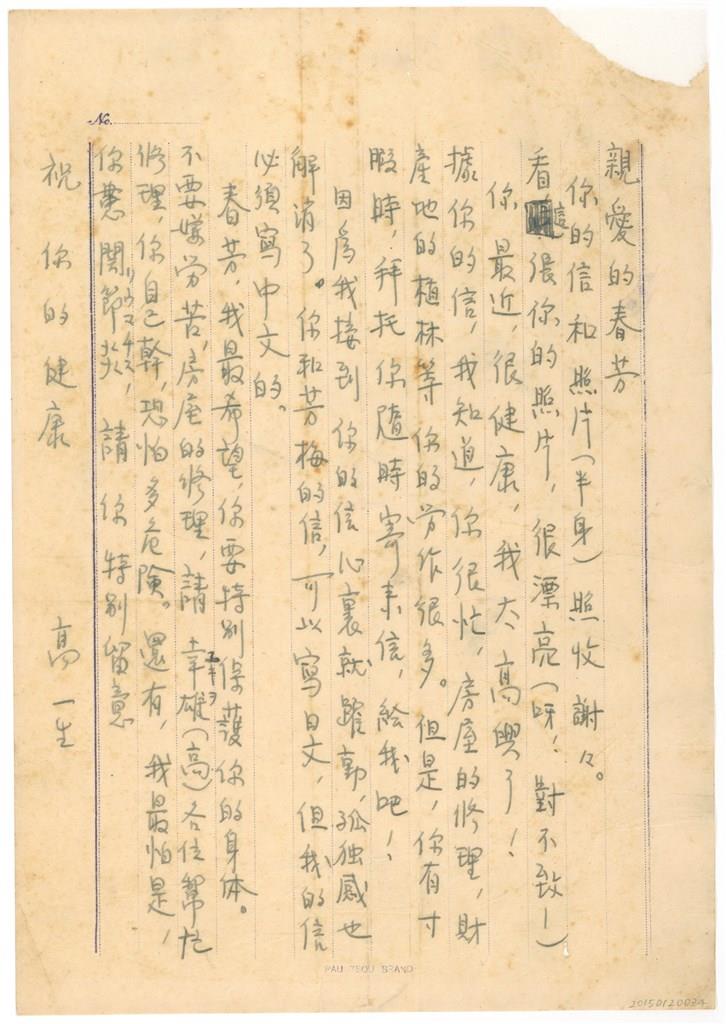 No.
親愛的春芳
你的信和照片(半身)照收謝々。
看這張你的照片，很漂亮(呀！對不致！)
你最近，很健康，我太高興了！
據你的信，我知道，你很忙，房屋的修理，財
產地的植林等你的労作很多。但是，你有寸
暇時，拜托你隨時寄来信，給我吧！
因為我接到你的信心裏就躍動，孤独感也
解消了。你和芳梅的信，可以寫日文，但我的信
必須寫中文的。
春芳，我最希望，你要特別保護你的身体。
不要嫌労苦，房屋的修理，請幸雄(高)各位幫忙
修理，你自己幹，恐怕多危険。還有，我最怕是，
你患関節炎，請你特別留意
リウマチス
祝你的健康
高一生
PAU TSOU BRAND
20150120034